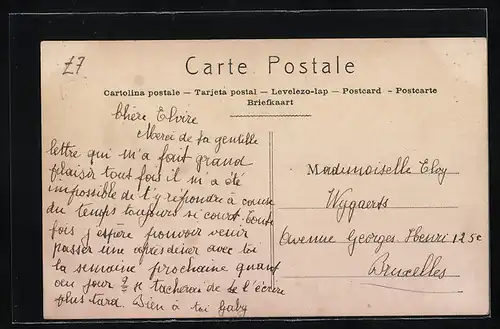 Z7
Carte Postale
Cartolina postale — Tarjeta postal — Levelezo-lap — Postcard — Postcarte
Briefkaart
Chère Elvire
Merci de ta gentille
lettre qui m'a fait grand
plaisir tout fois il m'a été
impossible de t'y répondre à cause
du temps toujours si court. Toute
fois j espère pouvoir venir
passer une après diner avec toi
la semaine prochaine quant
au jour je tacherai de te l'écrire
plus tard. Bien à toi Gaby
Mademoiselle Eloy
Wygaerts
Avenue Georges Henri 125c
Bruxelles